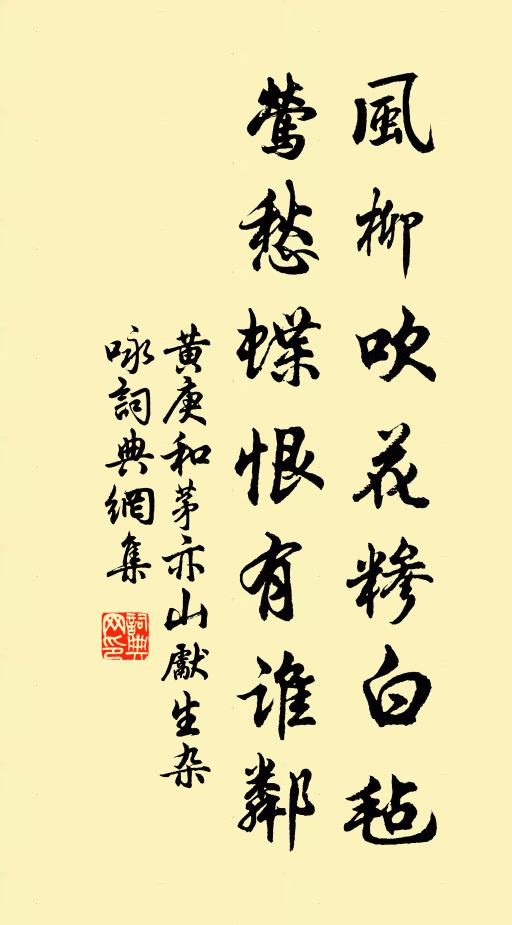 風柳吹花糝白毡
鶯愁蝶恨有誰鄰
黃庚和茅亦山獻生杂
咏詞典網集
詞典网印